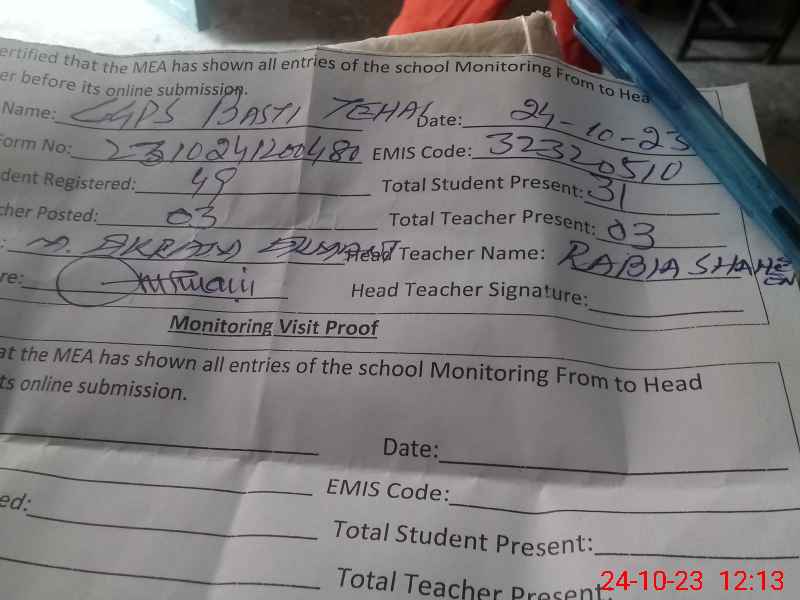 ertified that the MEA has shown all entries of the school Monitoring From to Hea
er before its online submission.
Name: GGPS BASTI TEHAL Date: 24-10-23
Form No: 2310241200480 EMIS Code: 32320510
dent Registered: 49 Total Student Present: 31
cher Posted: 03 Total Teacher Present: 03
: M. AKRAM Head Teacher Name: RABIA SHAHEEN
re: Head Teacher Signature:
Monitoring Visit Proof
at the MEA has shown all entries of the school Monitoring From to Head
ts online submission.
Date:
EMIS Code:
ed: Total Student Present:
Total Teacher Present:
24-10-23 12:13